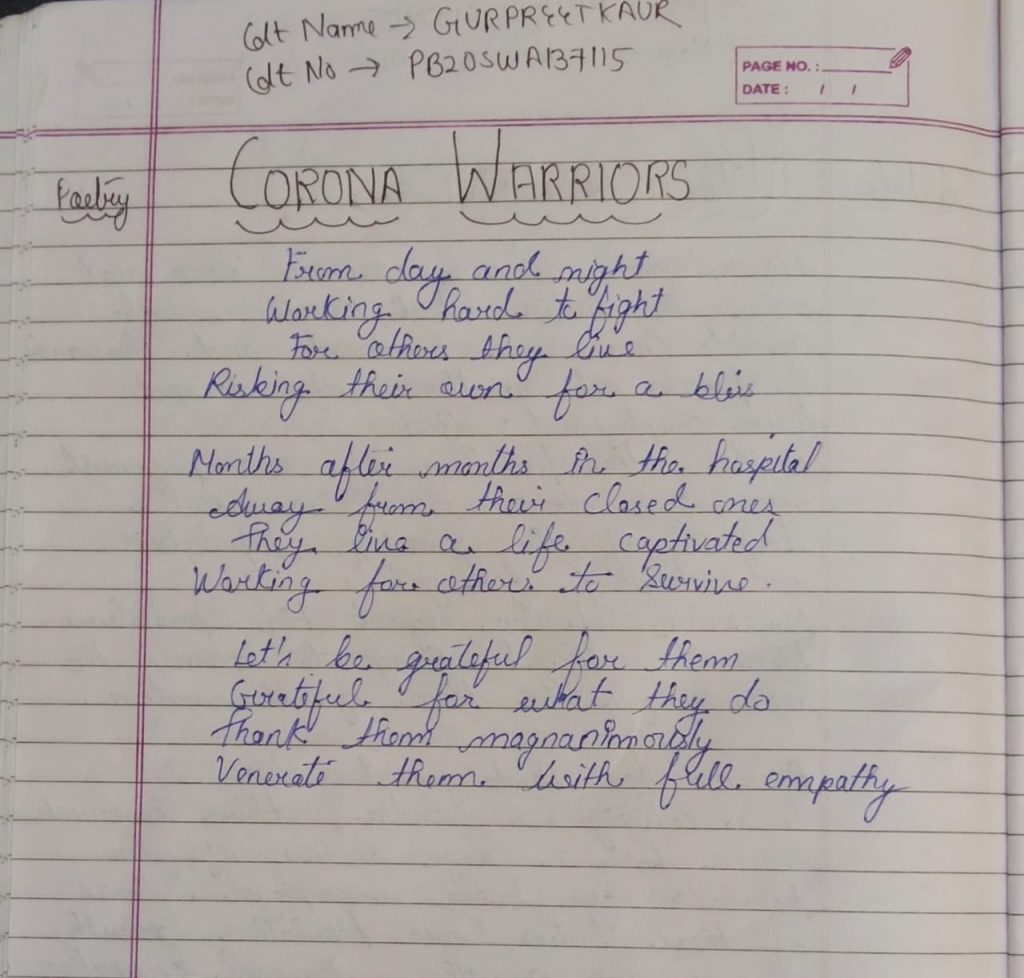 Cdt Name → GURPREETKAUR
Cdt No → PB20SWA137115
PAGE NO. :
DATE : / /
Poetry
CORONA WARRIORS
From day and night
Working hard to fight
For others they live
Risking their own for a bliss
Months after months in the hospital
Away from their closed ones
They live a life captivated
Working for others to Survive.
Let's be grateful for them
Grateful for what they do
Thank them magnanimously
Venerate them with full empathy